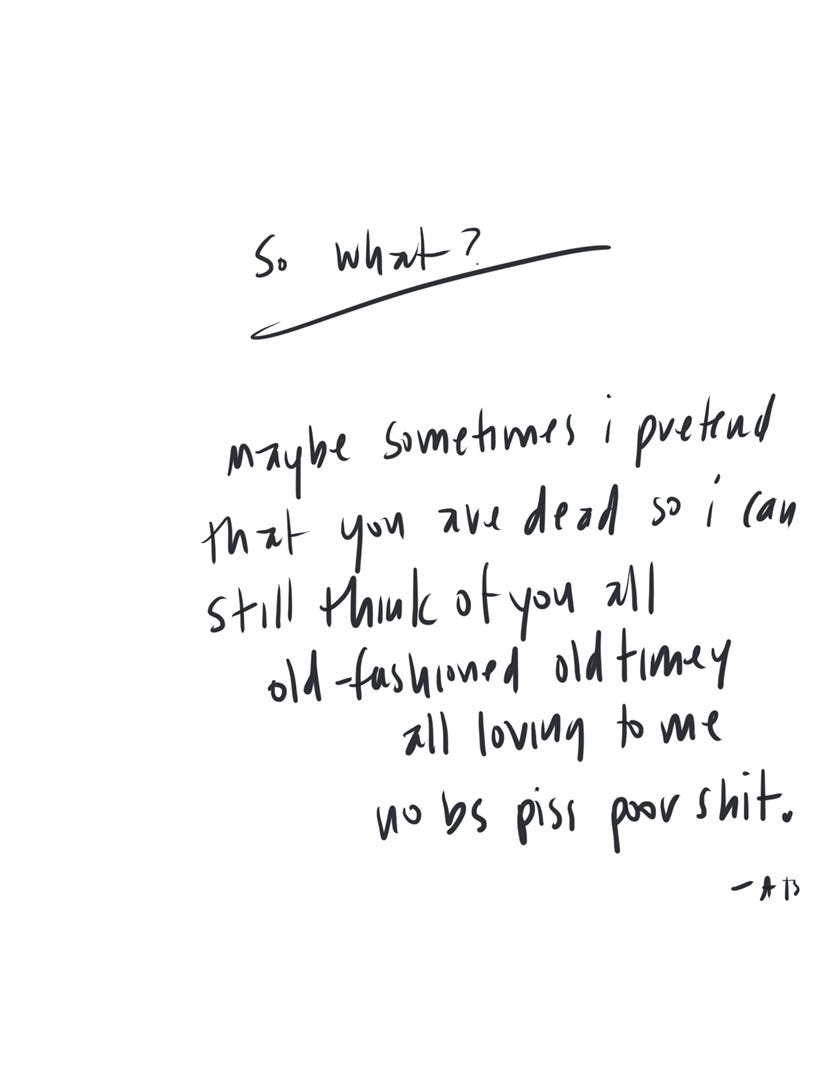 So what?
maybe sometimes i pretend
that you are dead so i can
still think of you all
old-fashioned old timey
all loving to me
no bs piss poor shit.
- AB